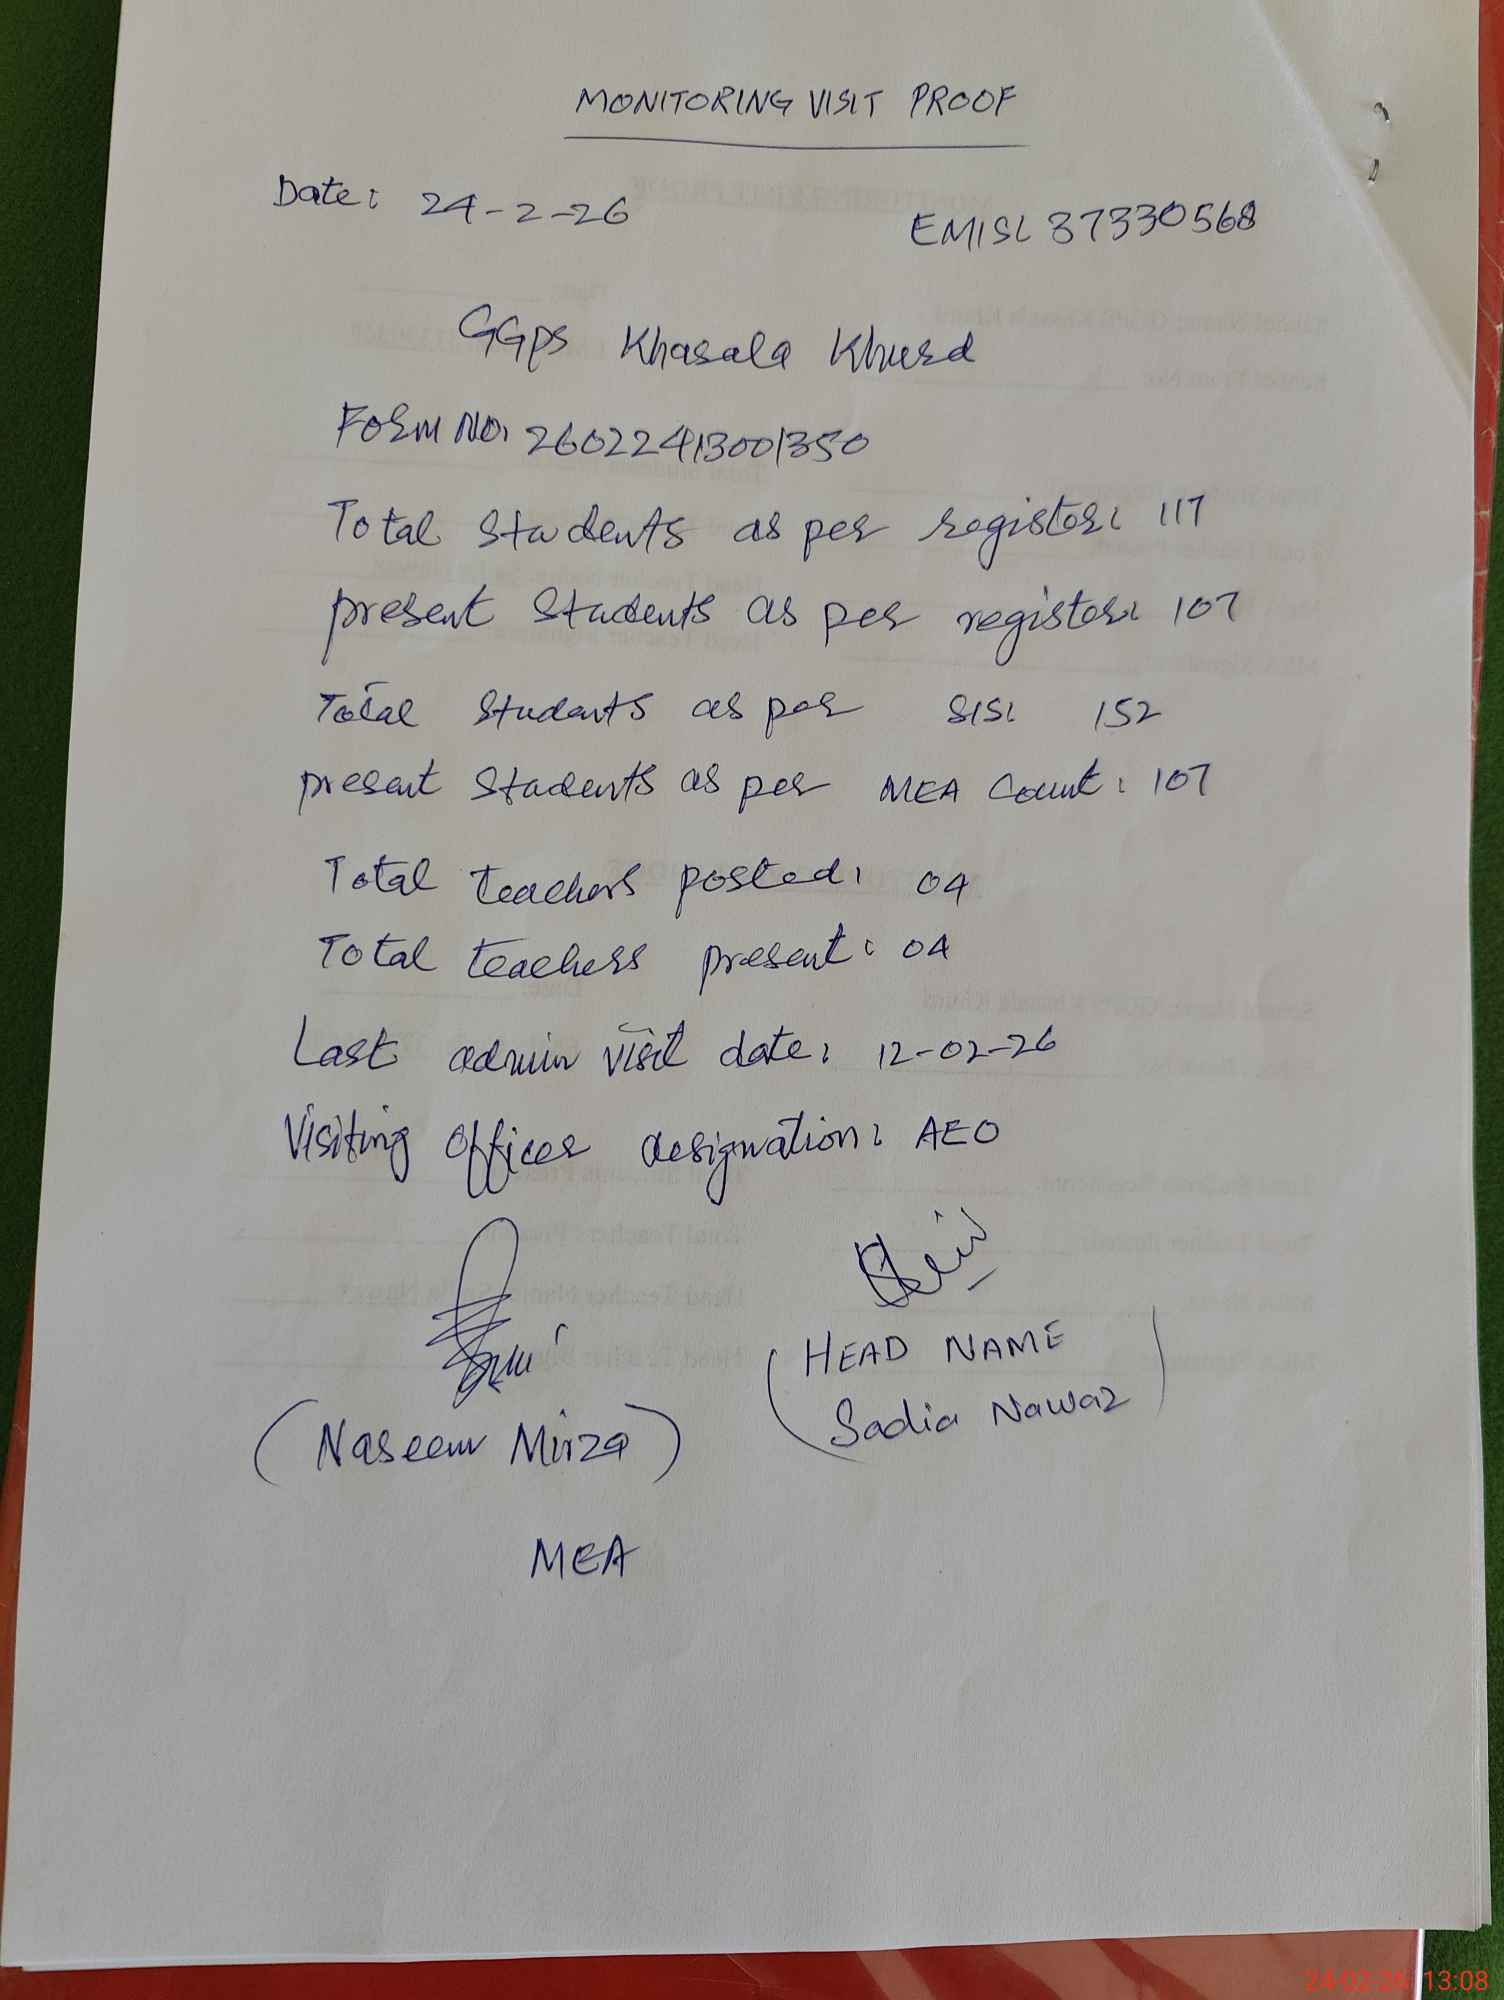 MONITORING VISIT PROOF
Date: 24-2-26
EMIS: 37330568
GGPS Khasala Khurd
Form No. 26022413001350
Total Students as per register: 117
present Students as per register: 107
Total Students as per SIS: 152
present Students as per MEA Count: 107
Total teachers posted: 04
Total teachers present: 04
Last admin visit date: 12-02-26
Visiting Officer designation: AEO
(HEAD NAME
Sadia Nawaz)
(Naseem Mirza)
MEA
24-02-26 13:08